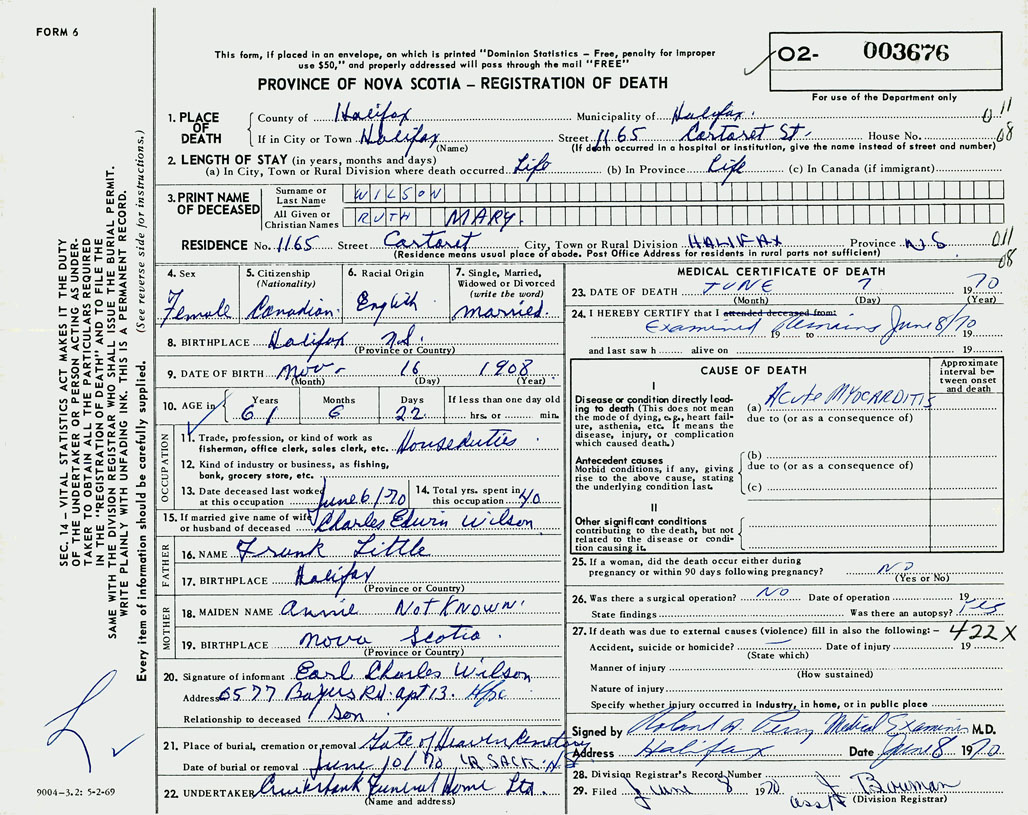 FORM 6
This form, if placed in an envelope, on which is printed "Dominion Statistics – Free, penalty for improper
use $50," and properly addressed will pass through the mail "FREE"
PROVINCE OF NOVA SCOTIA – REGISTRATION OF DEATH
02- 003676
For use of the Department only
1. PLACE OF DEATH
County of Halifax Municipality of Halifax. 011
If in City or Town Halifax Street 1165 Cartaret St. House No. 08
(Name) (If death occurred in a hospital or institution, give the name instead of street and number)
2. LENGTH OF STAY (in years, months and days)
(a) In City, Town or Rural Division where death occurred Life (b) In Province Life (c) In Canada (if immigrant)
3. PRINT NAME OF DECEASED
Surname or Last Name WILSON
All Given or Christian Names RUTH MARY.
RESIDENCE No. 1165 Street Cartaret City, Town or Rural Division HALIFAX Province NS 011
(Residence means usual place of abode. Post Office Address for residents in rural parts not sufficient) 08
4. Sex Female
5. Citizenship (Nationality) Canadian
6. Racial Origin English
7. Single, Married, Widowed or Divorced (write the word) Married.
8. BIRTHPLACE Halifax N.S.
(Province or Country)
9. DATE OF BIRTH Nov- 16 1908
(Month) (Day) (Year)
10. AGE in Years 61 Months 6 Days 22 If less than one day old hrs. or min.
OCCUPATION
11. Trade, profession, or kind of work as
fisherman, office clerk, sales clerk, etc. Houseduties
12. Kind of industry or business, as fishing,
bank, grocery store, etc.
13. Date deceased last worked at this occupation June 6/70
14. Total yrs. spent in this occupation 40
15. If married give name of wife or husband of deceased Charles Edwin Wilson
FATHER
16. NAME Frank Little
17. BIRTHPLACE Halifax
(Province or Country)
MOTHER
18. MAIDEN NAME Annie Not Known.
19. BIRTHPLACE Nova Scotia
(Province or Country)
20. Signature of informant Earl Charles Wilson
Address 6577 Bayers Rd. apt 13. Hfx
Relationship to deceased Son
21. Place of burial, cremation or removal Gate of Heaven Cemetery
Date of burial or removal June 10/70 LR SACK. N.S
22. UNDERTAKER Cruikshank Funeral Home Ltd.
(Name and address)
MEDICAL CERTIFICATE OF DEATH
23. DATE OF DEATH JUNE 7 1970
(Month) (Day) (Year)
24. I HEREBY CERTIFY that I attended deceased from:
Examined Remains June 8/70
19 to 19
and last saw h alive on 19
CAUSE OF DEATH
Approximate interval between onset and death
I
Disease or condition directly leading to death (This does not
mean the mode of dying, e.g., heart failure, asthenia, etc. It means the
disease, injury, or complication
which caused death.)
(a) ACUTE MYOCARDITIS
due to (or as a consequence of)
Antecedent causes
Morbid conditions, if any, giving
rise to the above cause, stating
the underlying condition last.
(b)
due to (or as a consequence of)
(c)
II
Other significant conditions
contributing to the death, but not
related to the disease or condition
causing it.
25. If a woman, did the death occur either during
pregnancy or within 90 days following pregnancy? NO
(Yes or No)
26. Was there a surgical operation? NO Date of operation 19
State findings Was there an autopsy? Yes
27. If death was due to external causes (violence) fill in also the following:– 422X
Accident, suicide or homicide? Date of injury 19
(State which)
Manner of injury
(How sustained)
Nature of injury
Specify whether injury occurred in industry, in home, or in public place
Signed by Robert A Perry Medical Examiner M.D.
Address Halifax Date June 8 1970
28. Division Registrar's Record Number
29. Filed June 8 1970 J Bowman
(Division Registrar)
ass't
SEC. 14 – VITAL STATISTICS ACT MAKES IT THE DUTY
OF THE UNDERTAKER OR PERSON ACTING AS UNDERTAKER
TO OBTAIN ALL THE PARTICULARS REQUIRED
IN THE "REGISTRATION OF DEATH" AND TO FILE THE
SAME WITH THE DIVISION REGISTRAR WHO SHALL ISSUE THE BURIAL PERMIT.
WRITE PLAINLY WITH UNFADING INK. THIS IS A PERMANENT RECORD.
Every item of information should be carefully supplied. (See reverse side for instructions.)
9004-3.2: 5-2-69